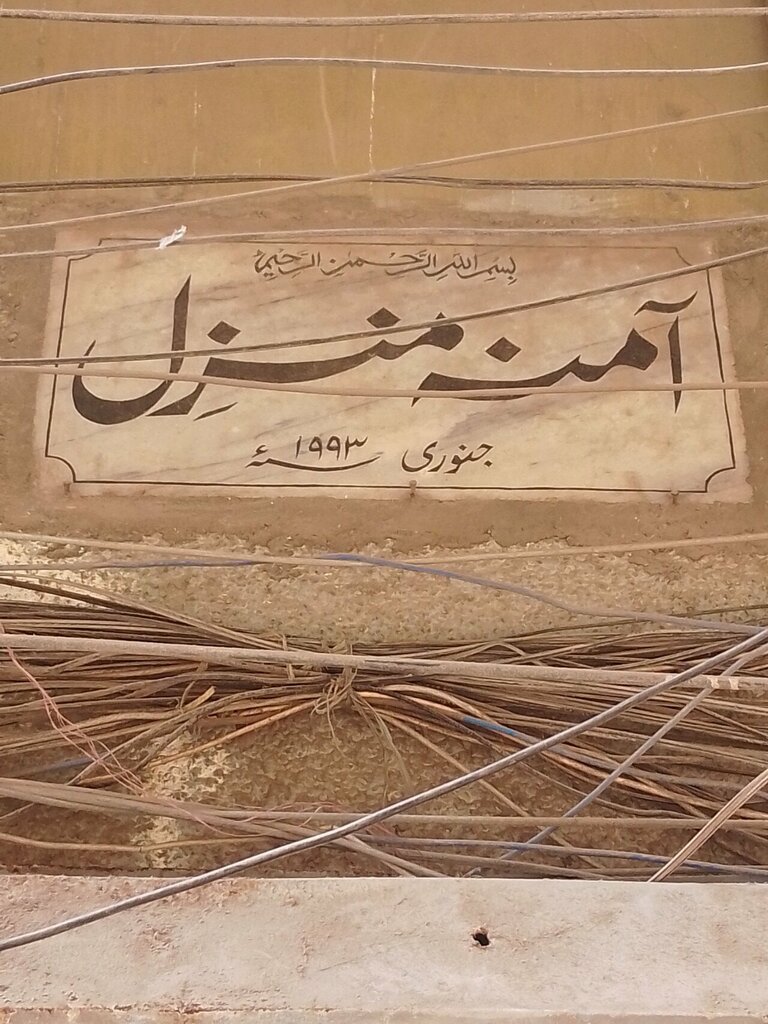 بسم الله الرحمن الرحيم
آمنہ منزل
جنوری ۱۹۹۳ سنہٴ